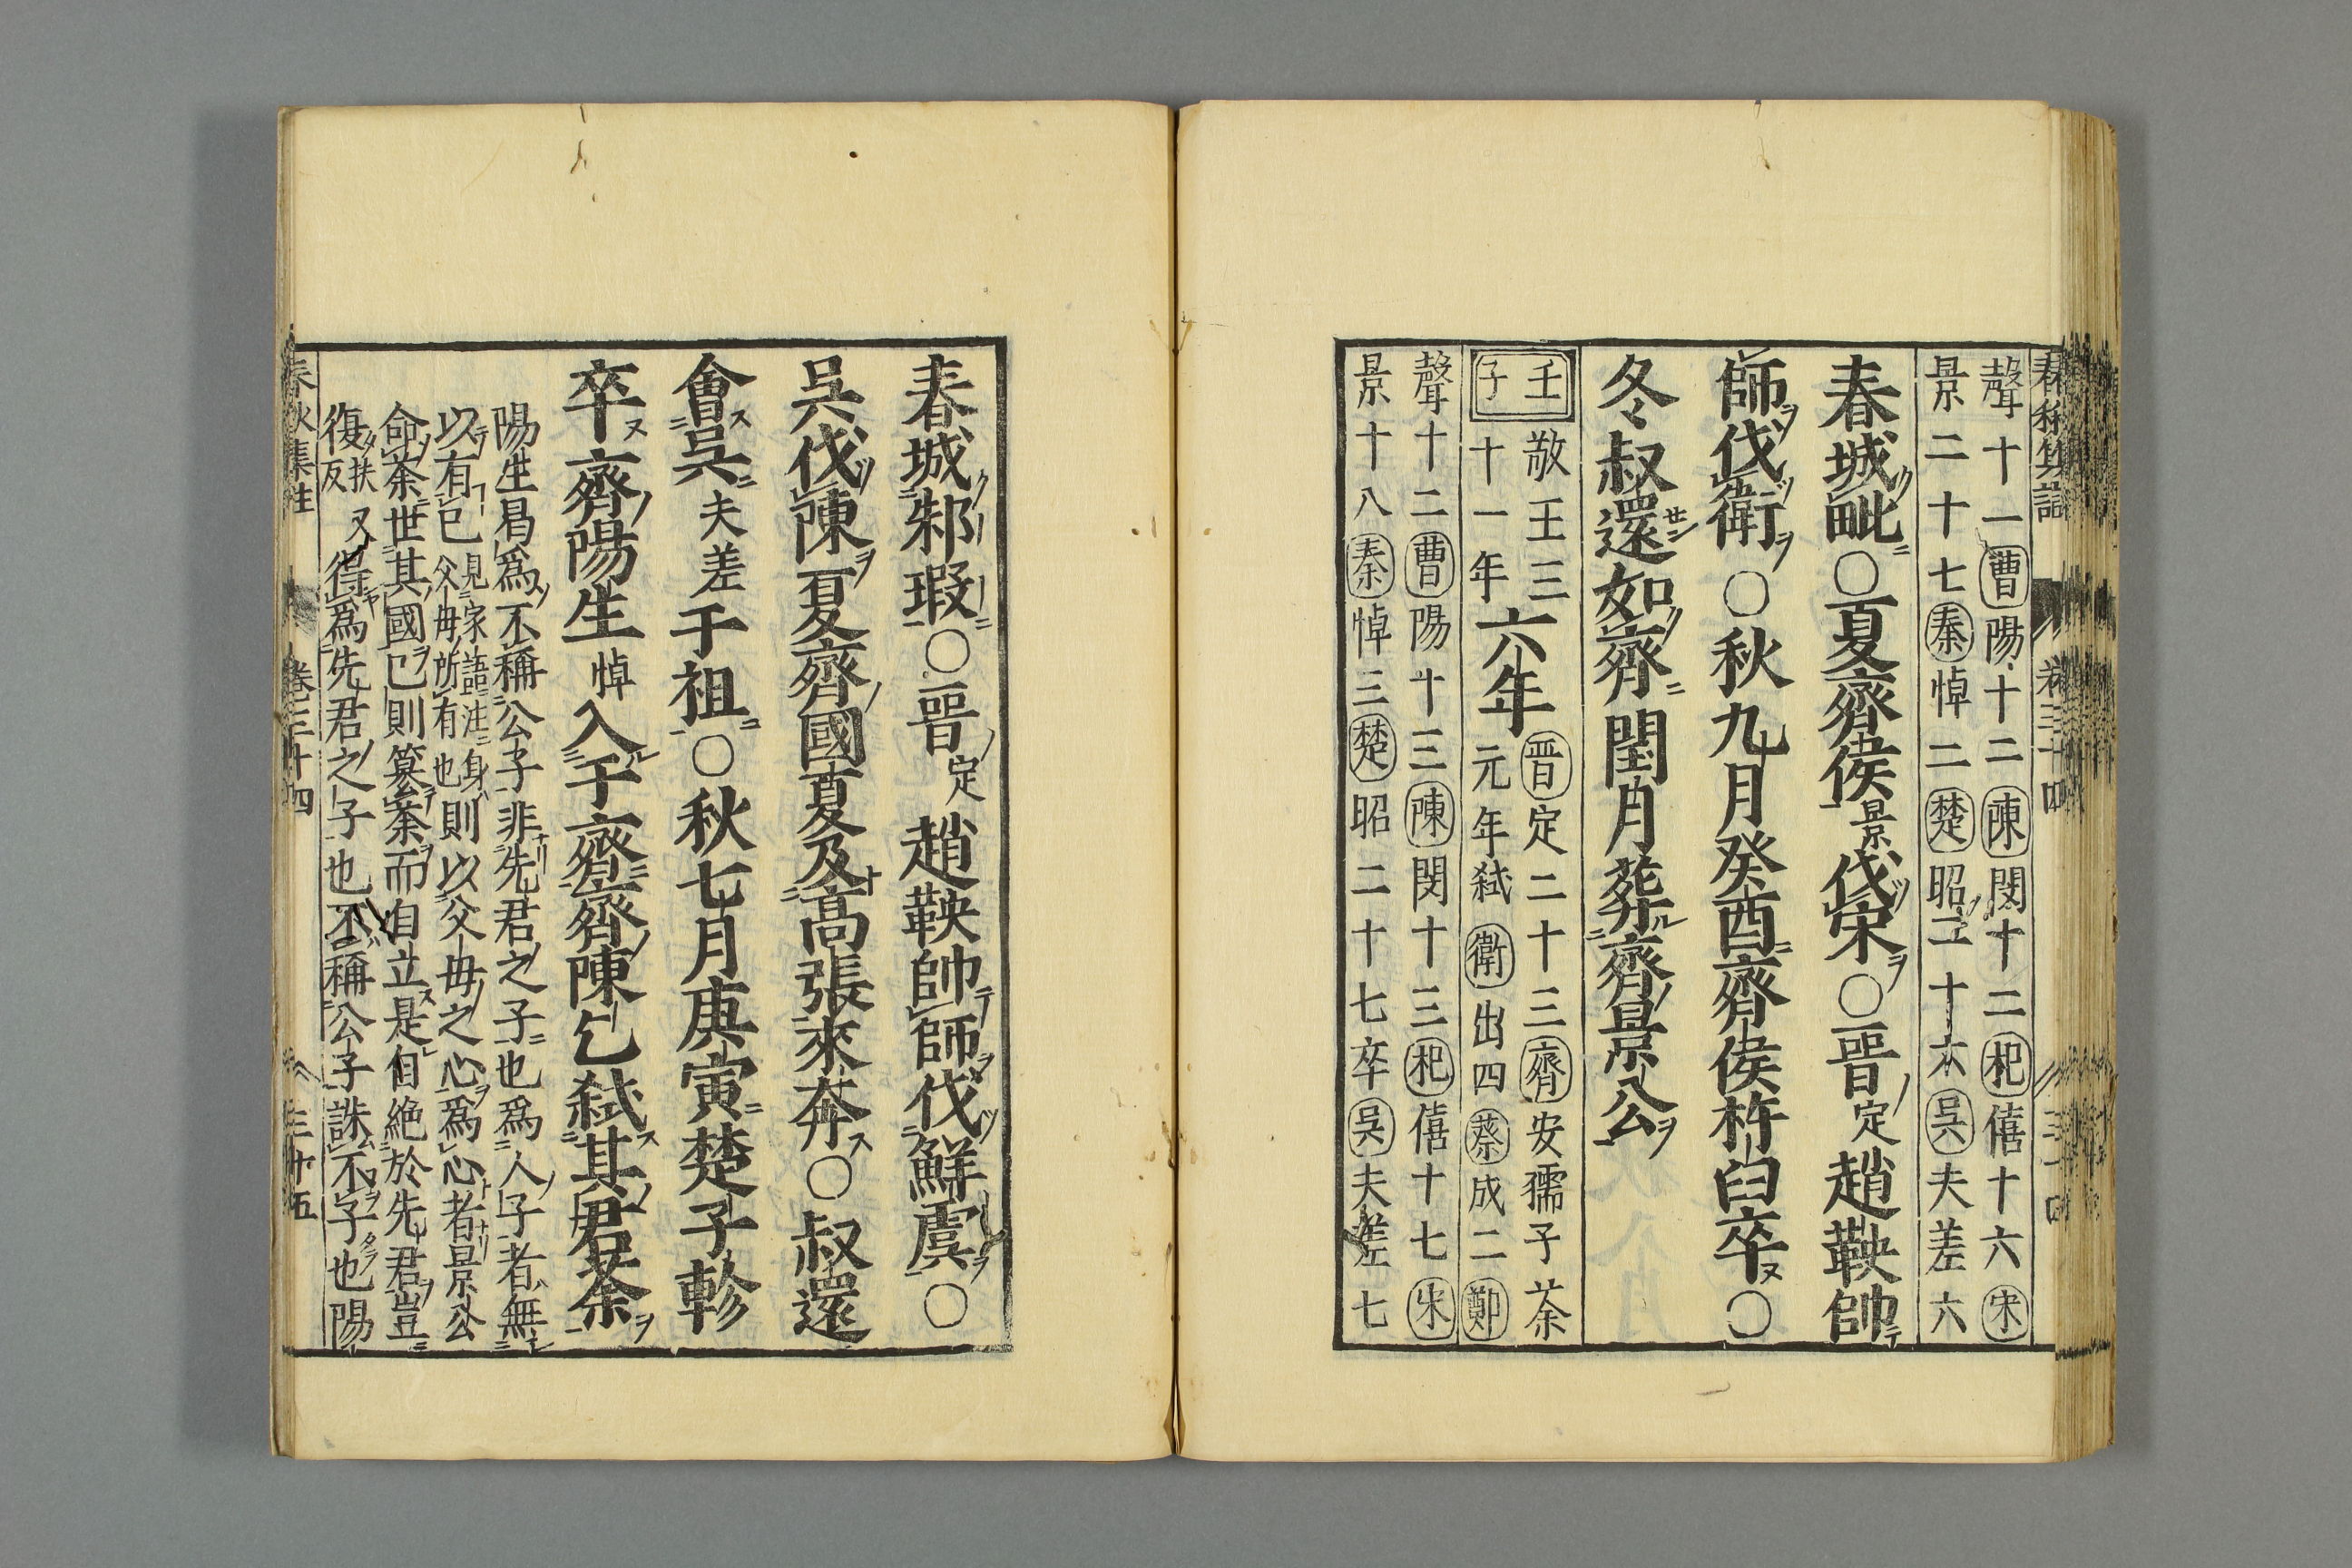 聲十一曹陽十二陳閔十二杞僖十六宋
景二十七秦悼二楚昭二十六吳夫差六
春城毗○夏齊侯景伐宋○晉定趙鞅帥
師伐衛○秋九月癸酉齊侯杵臼卒○
冬叔還如齊閏月葬齊景公
壬子 敬王三十一年 六年 晉定二十三齊安孺子荼元年弒衛出四蔡成二鄭
聲十二曹陽十三陳閔十三杞僖十七宋
景十八秦悼三楚昭二十七卒吳夫差七
春城邾瑕○晉定趙鞅帥師伐鮮虞○
吳伐陳夏齊國夏及高張來奔○叔還
會吳夫差于祖○秋七月庚寅楚子軫
卒齊陽生悼入于齊齊陳乞弒其君荼
陽生曷爲不稱公子非先君之子也爲人子者無
以有已見家語注身父毋所有也則以父毋之心爲心者景公
命荼世其國已則篡荼而自立是自絶於先君豈
復扶又反得爲先君之子也不稱公子誅不子也陽
春秋集註 卷三十四 三十五